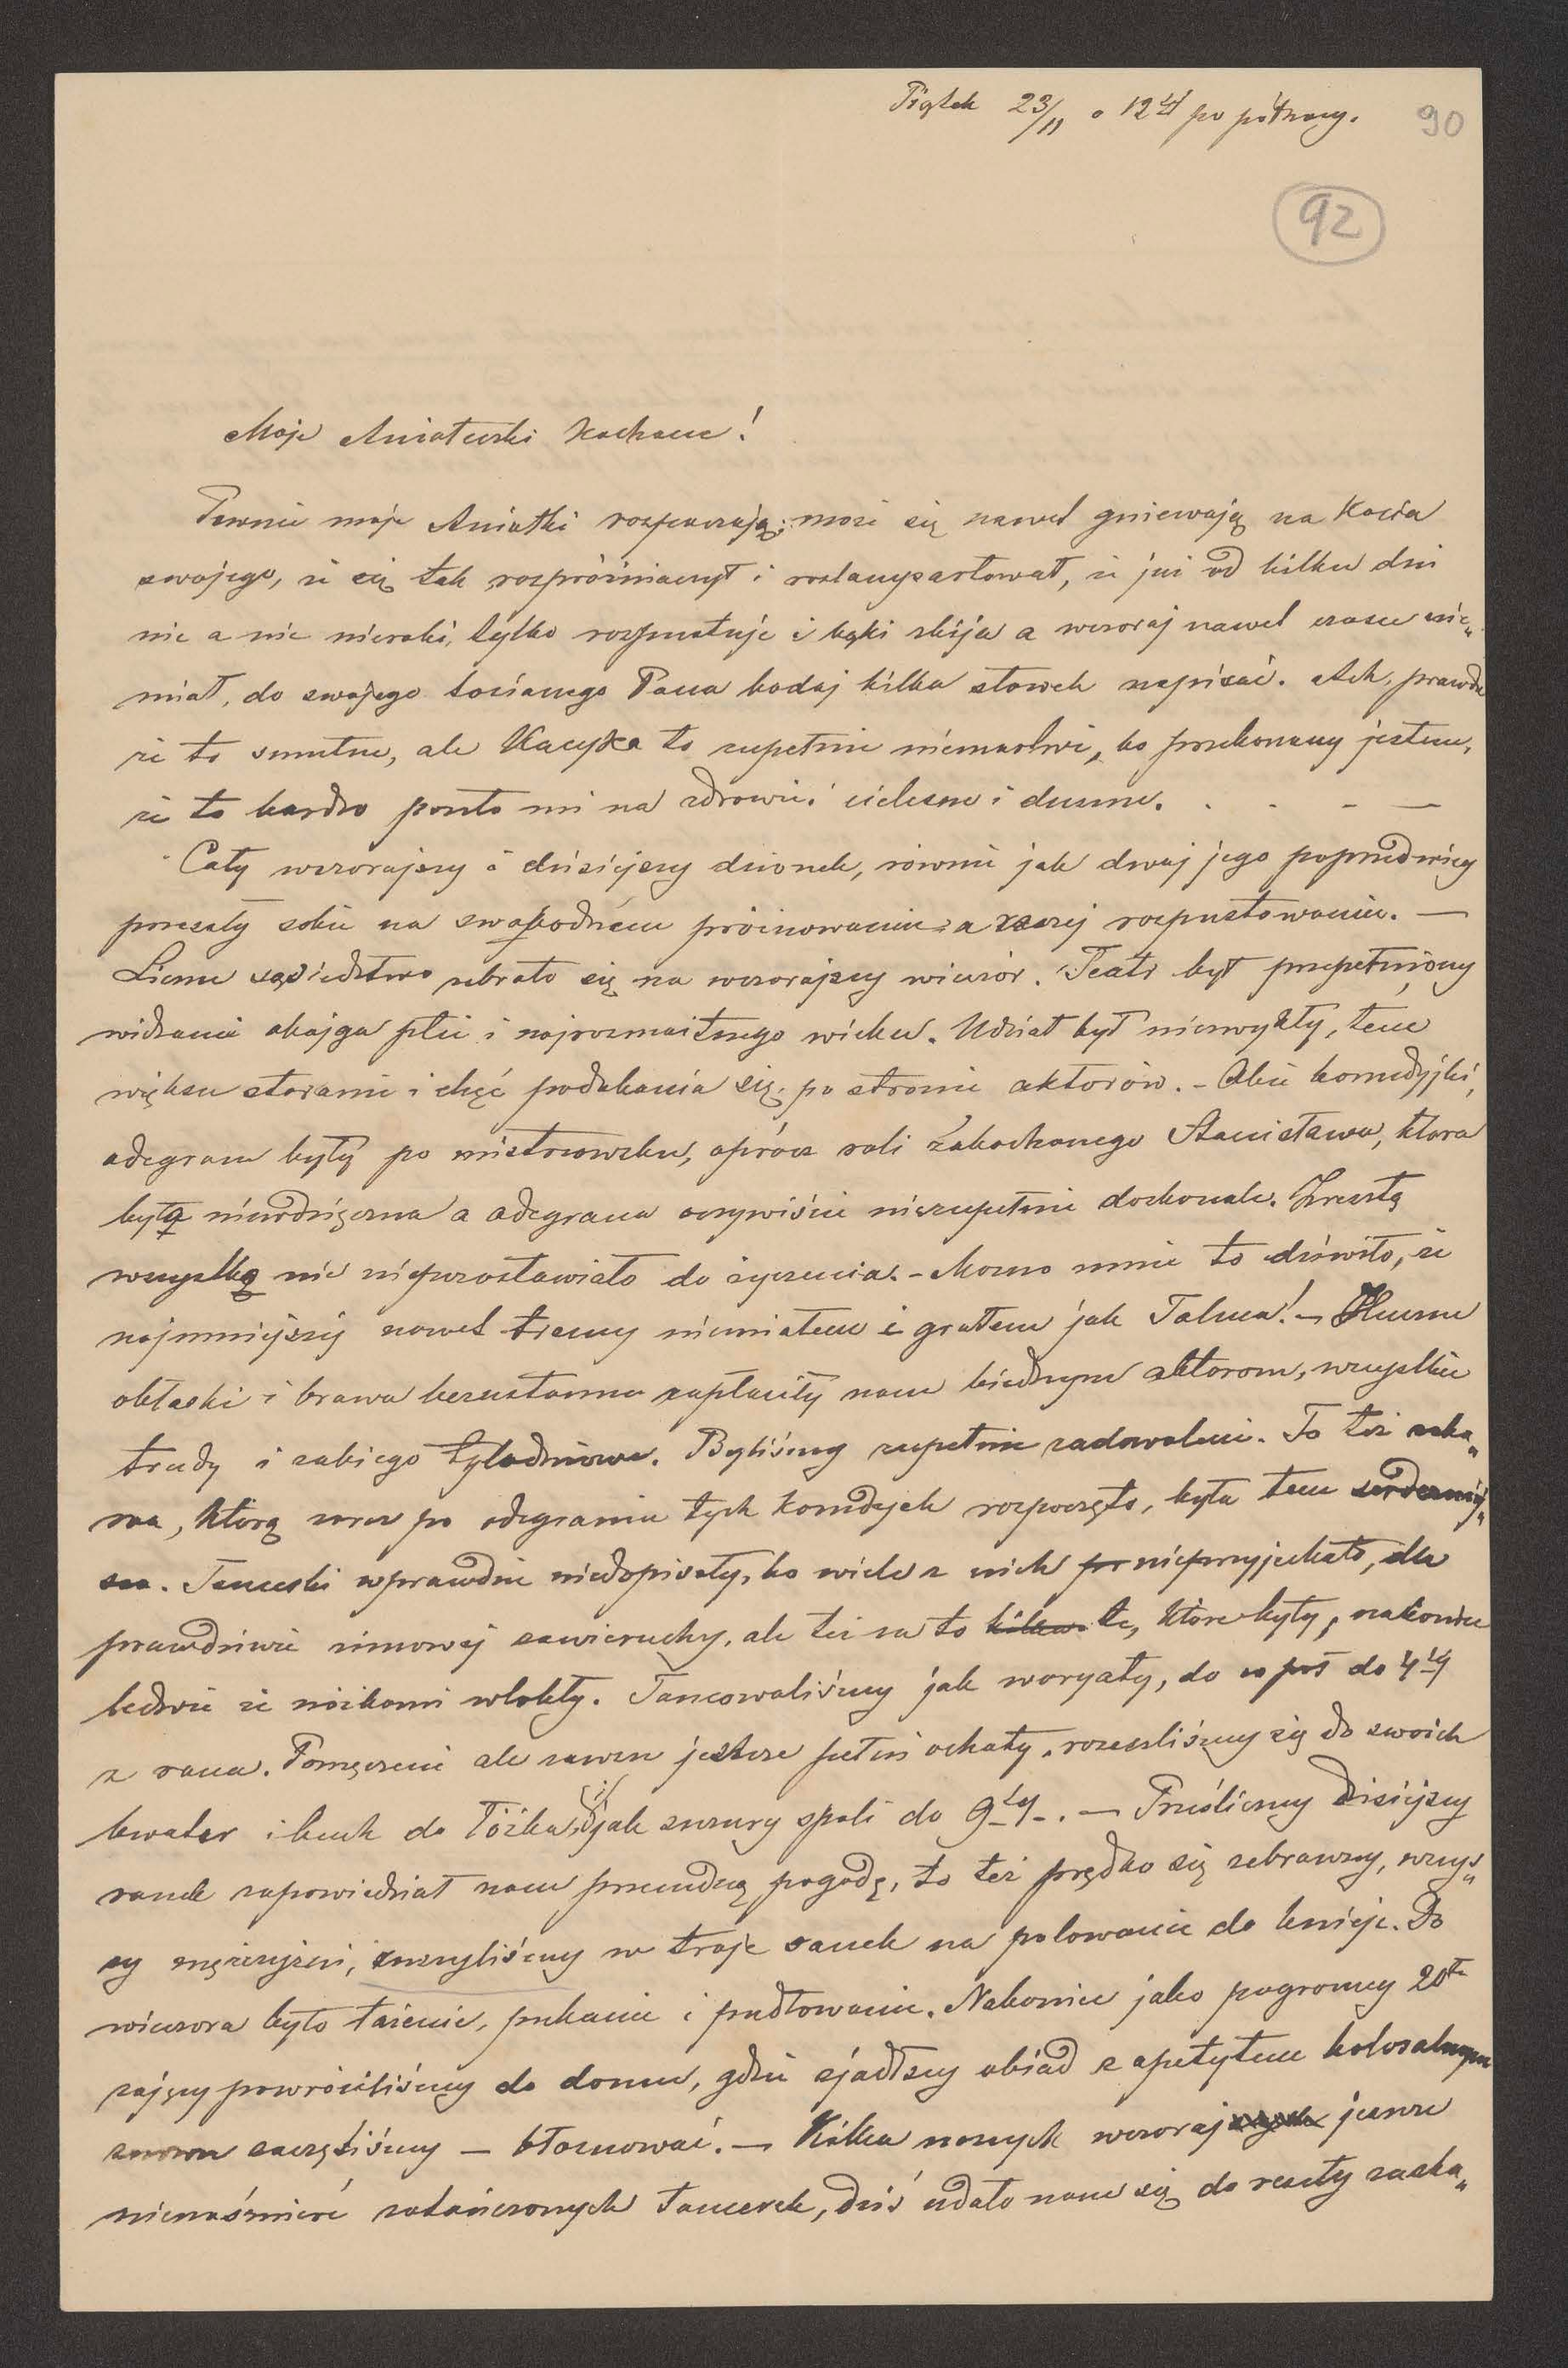 Piątek 23/11 o 12tej po północy. 90
92
Moje Aniołuski Kochane!
Pewnie moje Aniołki rozpaczają, może się nawet gniewają na Kacia
swojego, że się tak rozpróżniaczył i rozlampartował, że już od kilku dni
nic a nic nierobi, tylko rozpustuje i bąki zbija a wczoraj nawet czasu nie„
miał, do swojego Pana bodaj kilka słowek napisać. Ach, prawda
że to smutne, ale Kacyka to zupełnie niemartwi, bo przekonany jestem,
że to bardzo poszło mi na zdrowie i cielesne i duszne. . . – —
Cały wczorajszy i dzisiejszy dzionek, równie jak dwaj jego poprzednicy
poszedły sobie na swobodném próżnowaniu a raczej rozpustowaniu. —
Liczne sąsiedztwo zebrało się na wczorajszy wieczór. Teatr był przepełniony
widzami obojga płci i najrozmaitszego wieku. Udział był niezwykły, tem
większe staranie i chęć podobania się po stronie aktorów. – Obie komedyjki,
odegrane były po mistrzowsku, oprócz roli zakochanego Stanisława, ktora
była niewdzięczna a odegrana oczywiście niezupełnie doskonale. Zresztą
wszystko nic niepozostawiało do życzenia. – Mocno mnie to dziwiło, że
najmniejszej nawet tremy niemiałem i grałem jak Talma! – Huczne
oklaski i brawa bezustanne zapłaciły nam biednym aktorom, wszystkie
trudy i zabiegi tygodniowe. Byliśmy zupełnie zadowoleni. To też zaba„
wa, którą zaraz po odegraniu tych komedyjek rozpoczęto, była tem serdeczniej„
sza. Tancerki wprawdzie niedopisały, bo wiele z nich nieprzyjechało, dla
prawdziwie zimowej zawieruchy, ale też za to te, które były, nakoniec
ledwie że nóżkami wlokły. Tancowaliśmy jak waryaty, do w poł do 4tej
z rana. Pomęczeni ale zawsze jeszcze pełni ochoty, rozeszliśmy się do swoich
kwater i buch do łóżka i jak szczury spali do 9tej. — Prześliczny dzisiejszy
ranek zapowiedział nam przecudną pogodę, to też prędko się zebrawszy, wszys„
cy mężczyźni, ruszyliśmy w troje sanek na polowanie do kniei. Do
wieczora było łażenie, pukanie i pudłowanie. Nakoniec jako pogromcy 20tu
zajęcy powróciliśmy do domu, gdzie zjadłszy obiad z apetytem kolosalnym
znowu zaczęliśmy – błaznować. — Kilka naszych wczoraj jeszcze
nienaśmierć zatańczonych tancerek, dziś udało nam się do reszty zaska„